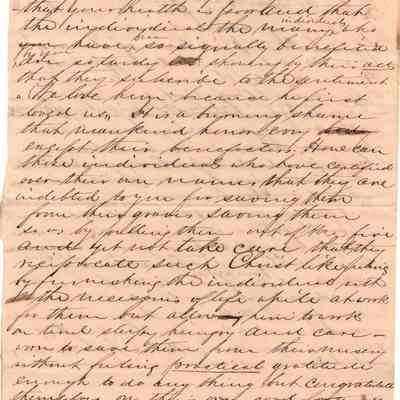 that your health is poor and that
the individuals the many who
individually
have, so signally benefited
are so tardy showing by their acts
that they subscribe to the sentiment
"We love him because he first
loved us," It is a burning shame
that mankind honor every
except their benefactors. How can
these individuals who have certified
over their own names that they are
indebted to you for saving them
from their graves saving them
so as by pulling them out of the fire
and yet not take care that they
reciprocate such Christ like
by furnishing the individual with
the necessaries of life while at work
for them but allow him to work
on time sleepy hungry and care-
worn to save them from their misery
without feeling practical gratitude
enough to do any thing but Congratulate
themselves on their own good